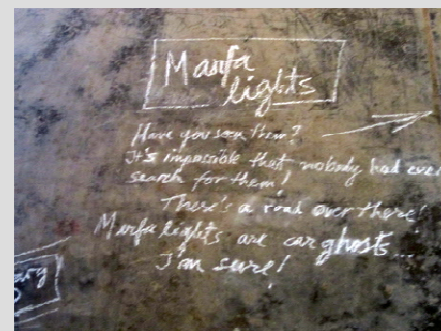 Marfa
lights
Have you seen them?
It's impossible that nobody had ever
search for them!
There's a road over there!
Marfa lights are car ghosts...
I'm sure!